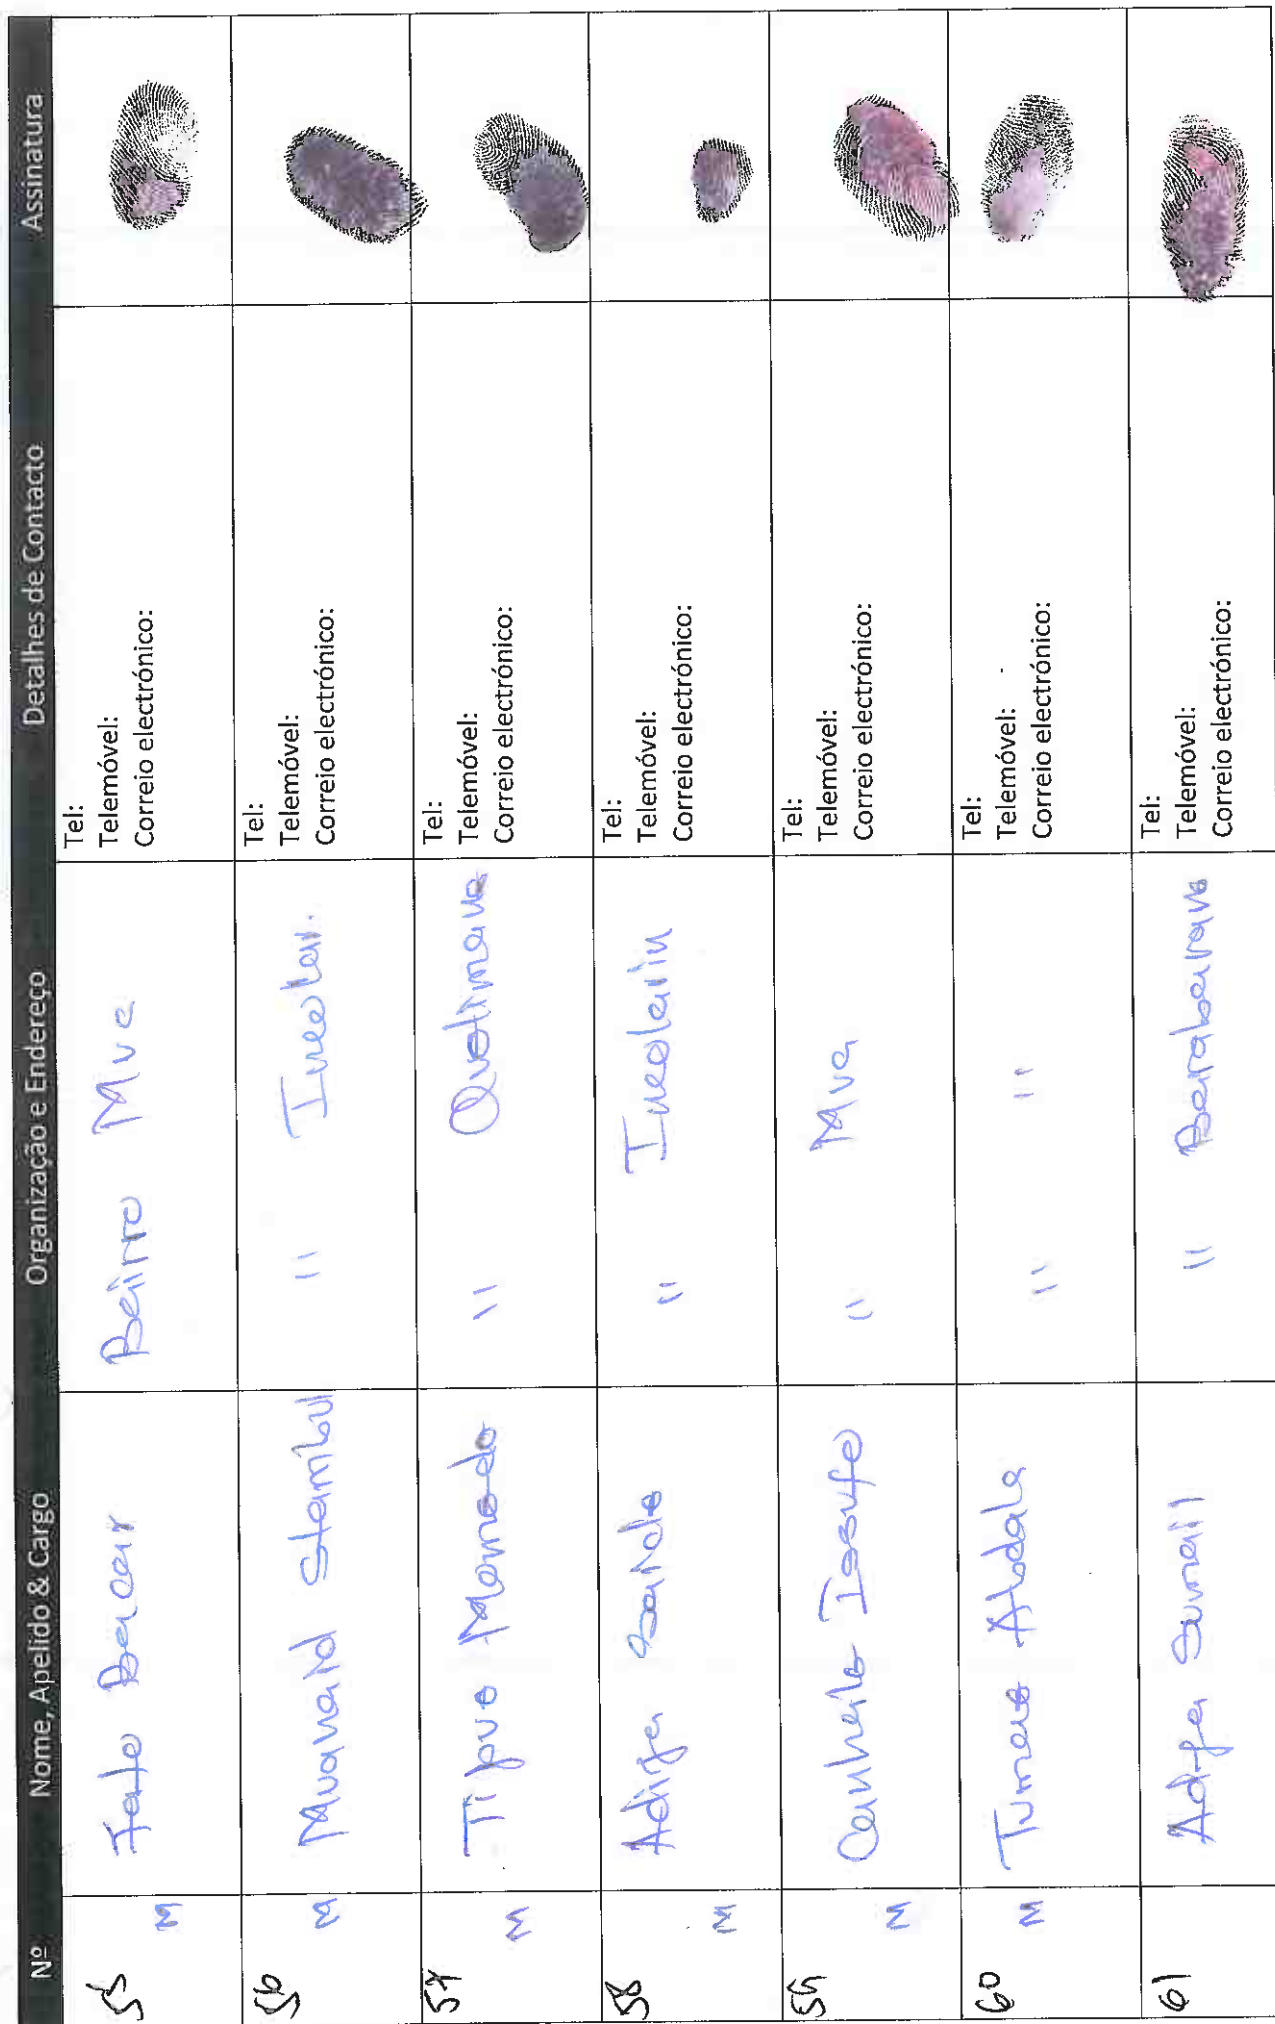 Nº Nome, Apelido & Cargo Organização e Endereço Detalhes de Contacto Assinatura
55 M Fato Bacar Bairro Mva Tel:
Telemóvel:
Correio electrónico:
56 M MuanaId " Tel:
Telemóvel:
Correio electrónico:
57 M Tipuo Mamado " Quelimane Tel:
Telemóvel:
Correio electrónico:
58 M Adija Saide " Tel:
Telemóvel:
Correio electrónico:
59 M Issufo " Mva Tel:
Telemóvel:
Correio electrónico:
60 M Abdala " " Tel:
Telemóvel:
Correio electrónico:
61 Adija Sumail " Tel:
Telemóvel:
Correio electrónico: